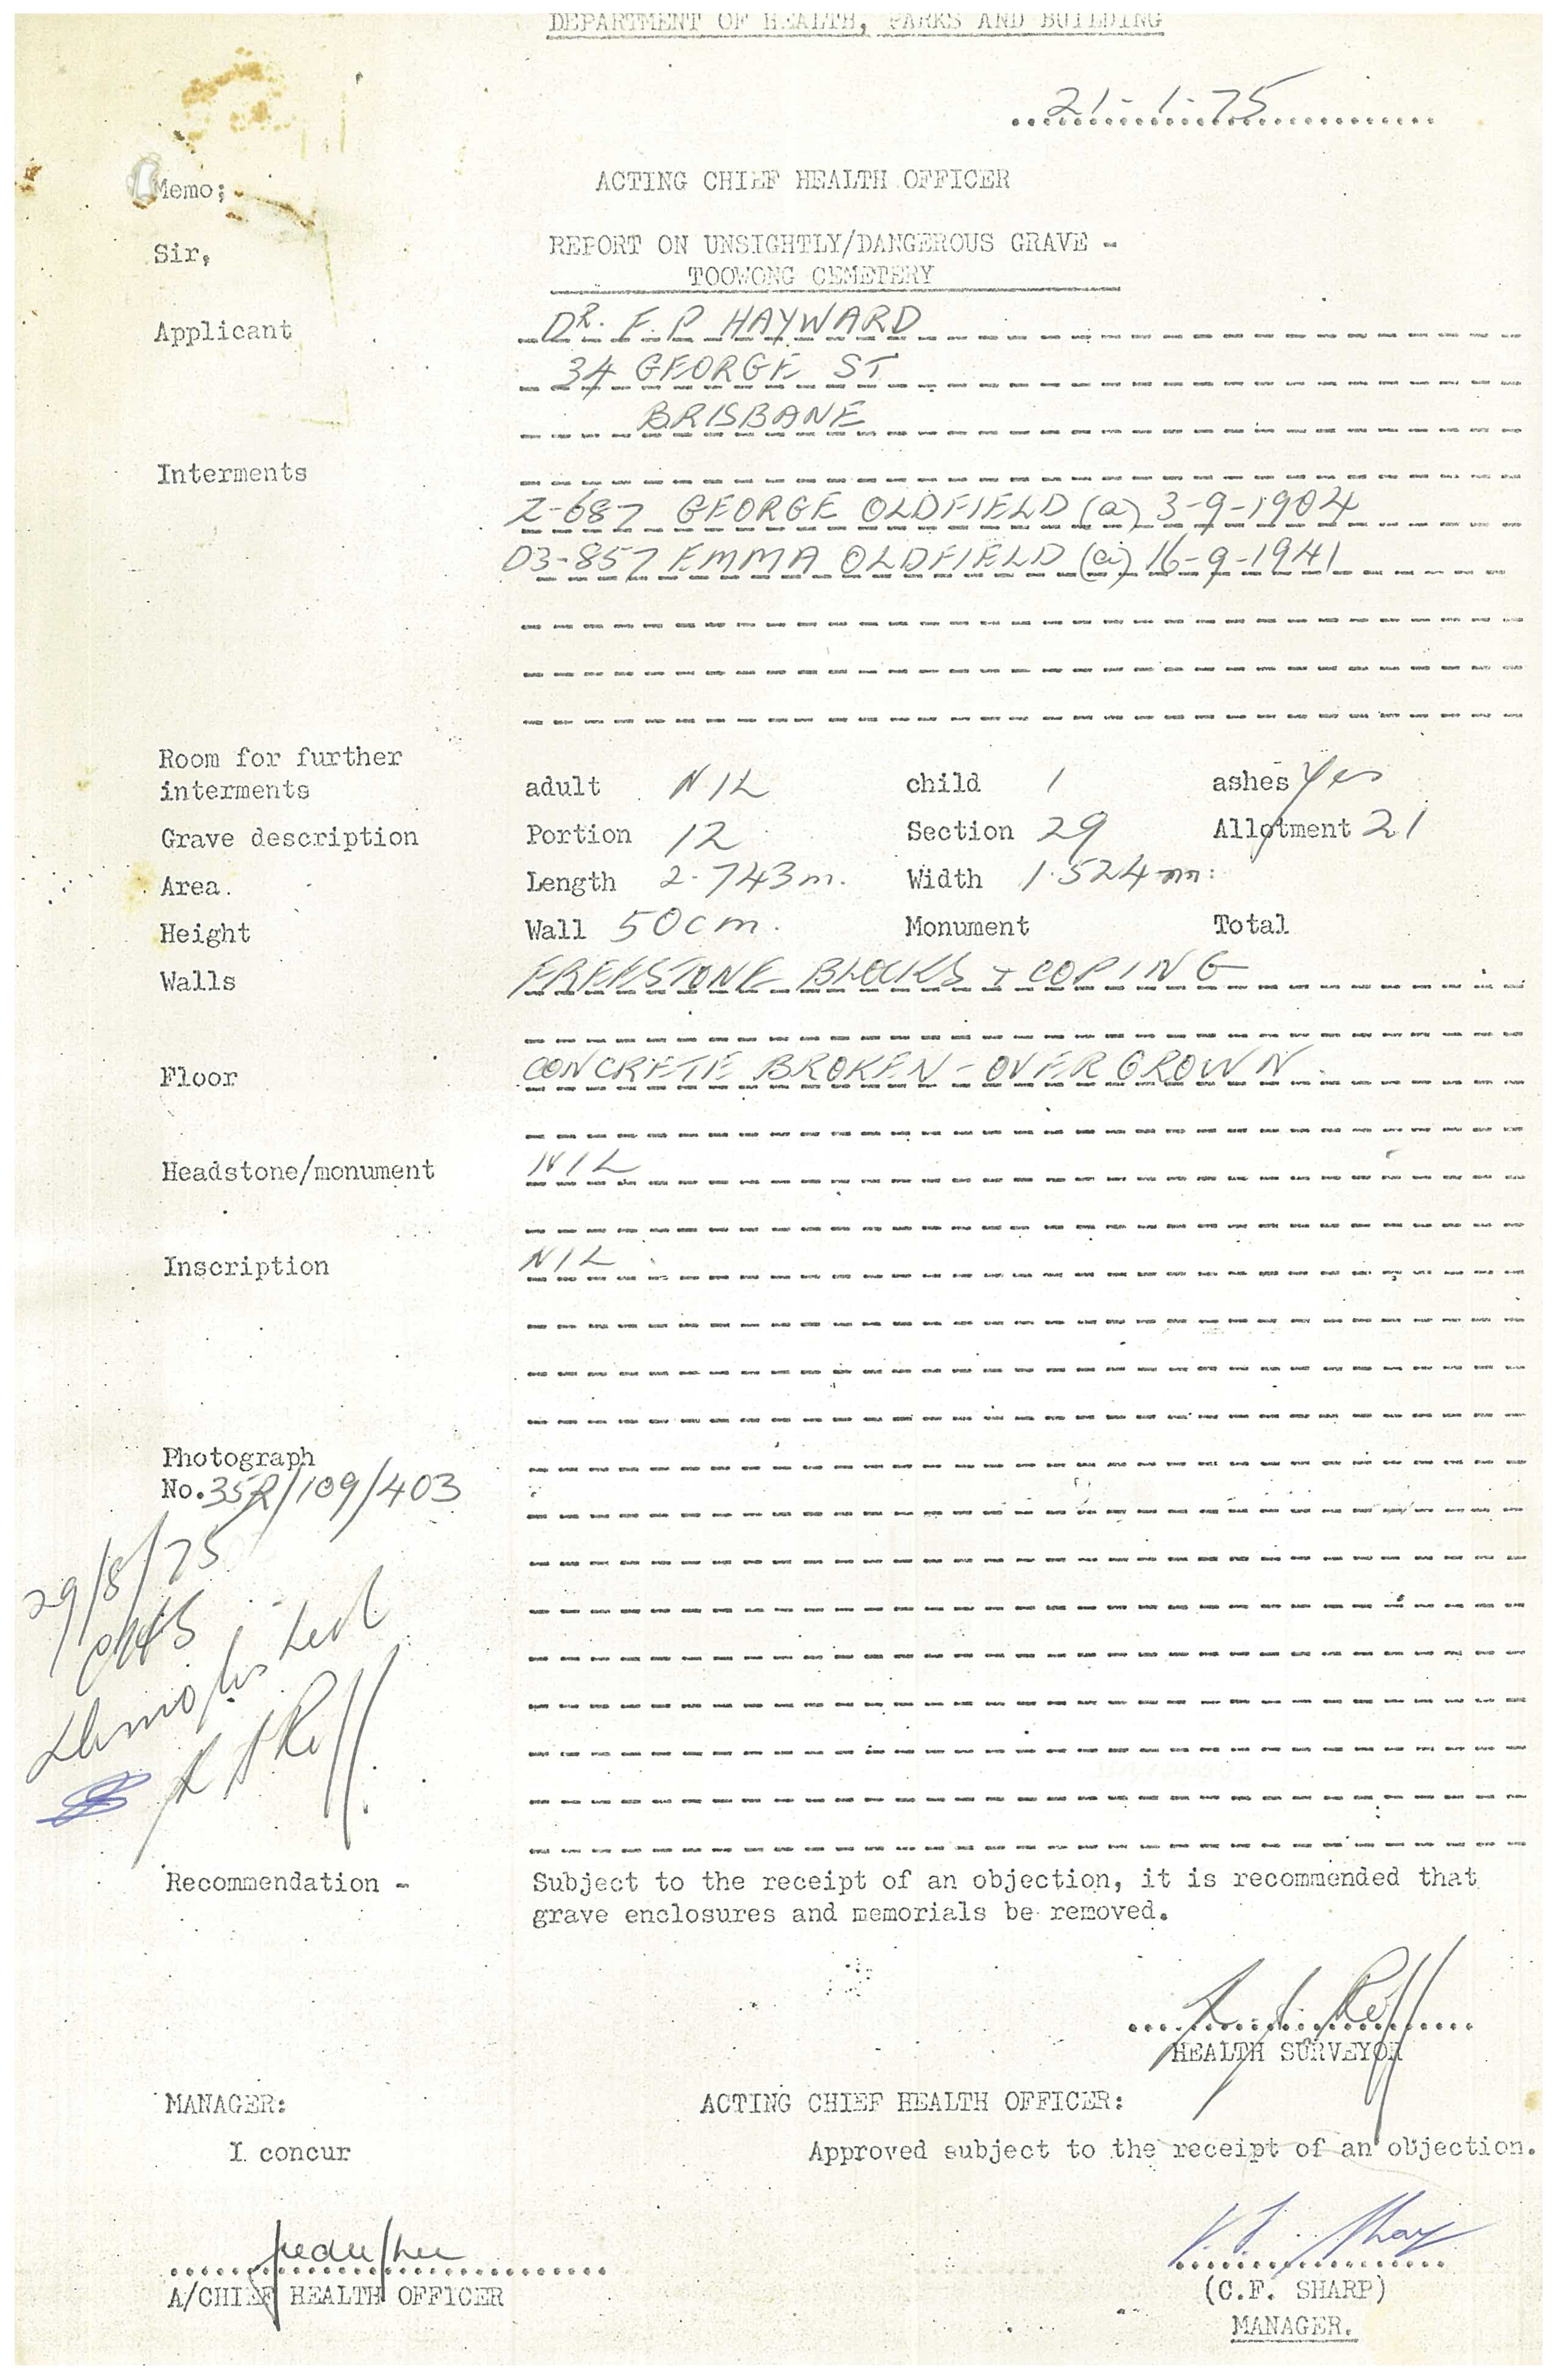 DEPARTMENT OF HEALTH, PARKS AND BUILDING
21-1-75
Memo; ACTING CHIEF HEALTH OFFICER
Sir, REPORT ON UNSIGHTLY/DANGEROUS GRAVE -
TOOWONG CEMETERY
Applicant DR. F. P HAYWARD
34 GEORGE ST
BRISBANE
Interments
Z-687 GEORGE OLDFIELD (a) 3-9-1904
D3-857 EMMA OLDFIELD (a) 16-9-1941
Room for further
interments adult NIL child 1 ashes Yes
Grave description Portion 12 Section 29 Allotment 21
Area. Length 2.743m. Width 1.524 m.
Height Wall 50cm. Monument Total
Walls FREESTONE BLOCKS + COPING
Floor CONCRETE BROKEN - OVERGROWN.
Headstone/monument NIL
Inscription NIL
Photograph
No. 35R/109/403
29/8/75
Demolished
Recommendation - Subject to the receipt of an objection, it is recommended that
grave enclosures and memorials be removed.
HEALTH SURVEYOR
MANAGER: ACTING CHIEF HEALTH OFFICER:
I concur Approved subject to the receipt of an objection.
A/CHIEF HEALTH OFFICER (C.F. SHARP)
MANAGER.